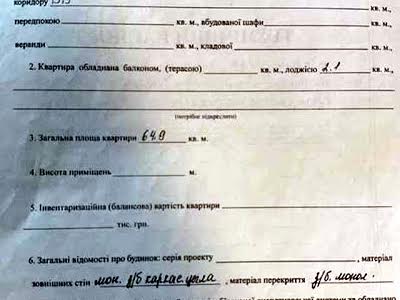 коридору кв. м.,
передпокою кв. м., вбудованої шафи кв. м.,
веранди кв. м., кладової кв. м.
2. Квартира обладнана балконом, (терасою) кв. м., лоджією 2.1 кв. м.,
(потрібне підкреслити)
3. Загальна площа квартири 64.9 кв. м.
4. Висота приміщень м.
5. Інвентаризаційна (балансова) вартість квартири
тис. грн.
6. Загальні відомості про будинок: серія проекту , матеріал
зовнішніх стін мон. з/б каркас, цегла , матеріал перекриття з/б. монол.